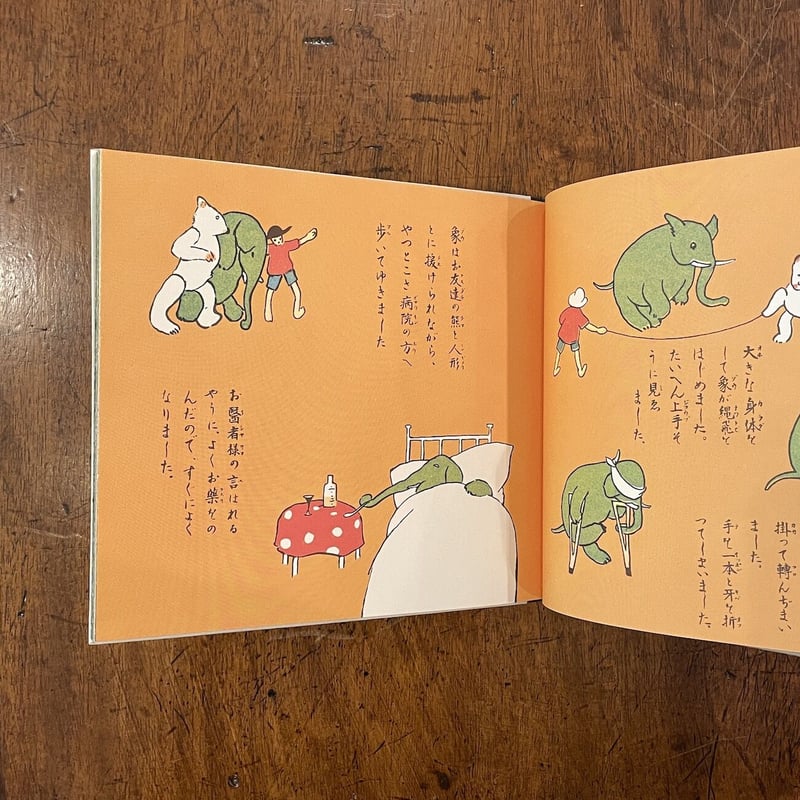 大きな身体を
して象が縄飛を
はじめました。
たいへん上手そ
うに見ゑ
ました、
掛つて轉んぢまい
ました。
手を一本と牙を折
つてしまいました。
象はお友達の熊と人形
とに援けられながら、
やつとこさ病院の方へ
歩いてゆきました
お醫者様の言はれる
やうに、よくお藥をの
んだので、すぐによく
なりました。